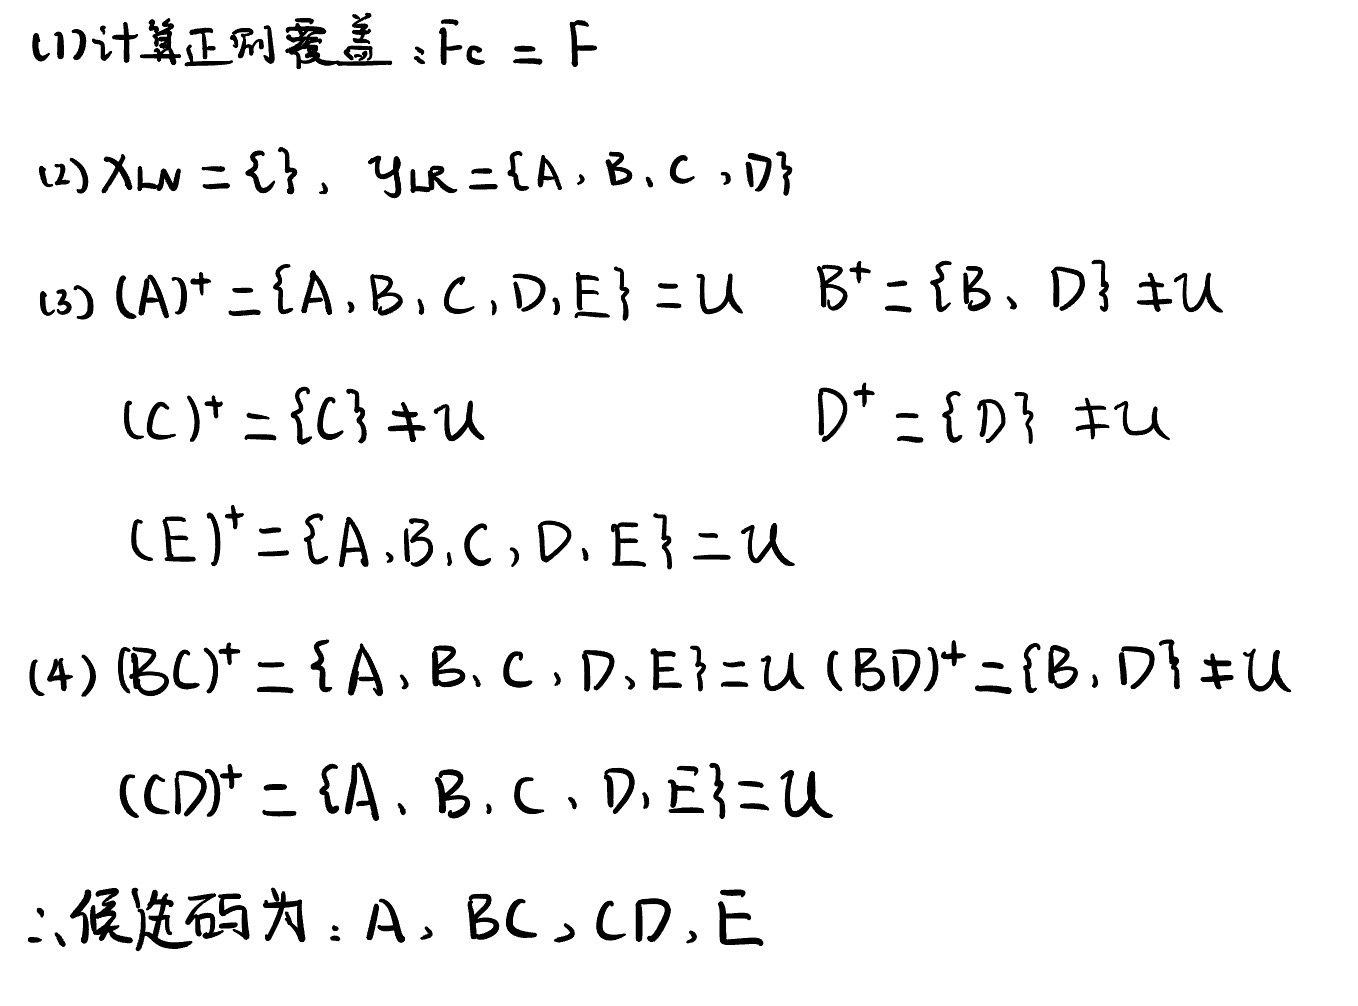 (1)计算正则覆盖:Fc = F
(2) XLN = {}, YLR = {A、B、C,D}
(3) (A)⁺ = {A、B、C,D,E} = U B⁺ = {B、D} ≠ U
(C)⁺ = {C} ≠ U D⁺ = {D} ≠ U
(E)⁺ = {A、B、C,D、E} = U
(4) (BC)⁺ = {A、B、C、D、E} = U (BD)⁺ = {B、D} ≠ U
(CD)⁺ = {A、B、C、D、E} = U
∴候选码为:A、BC,CD、E